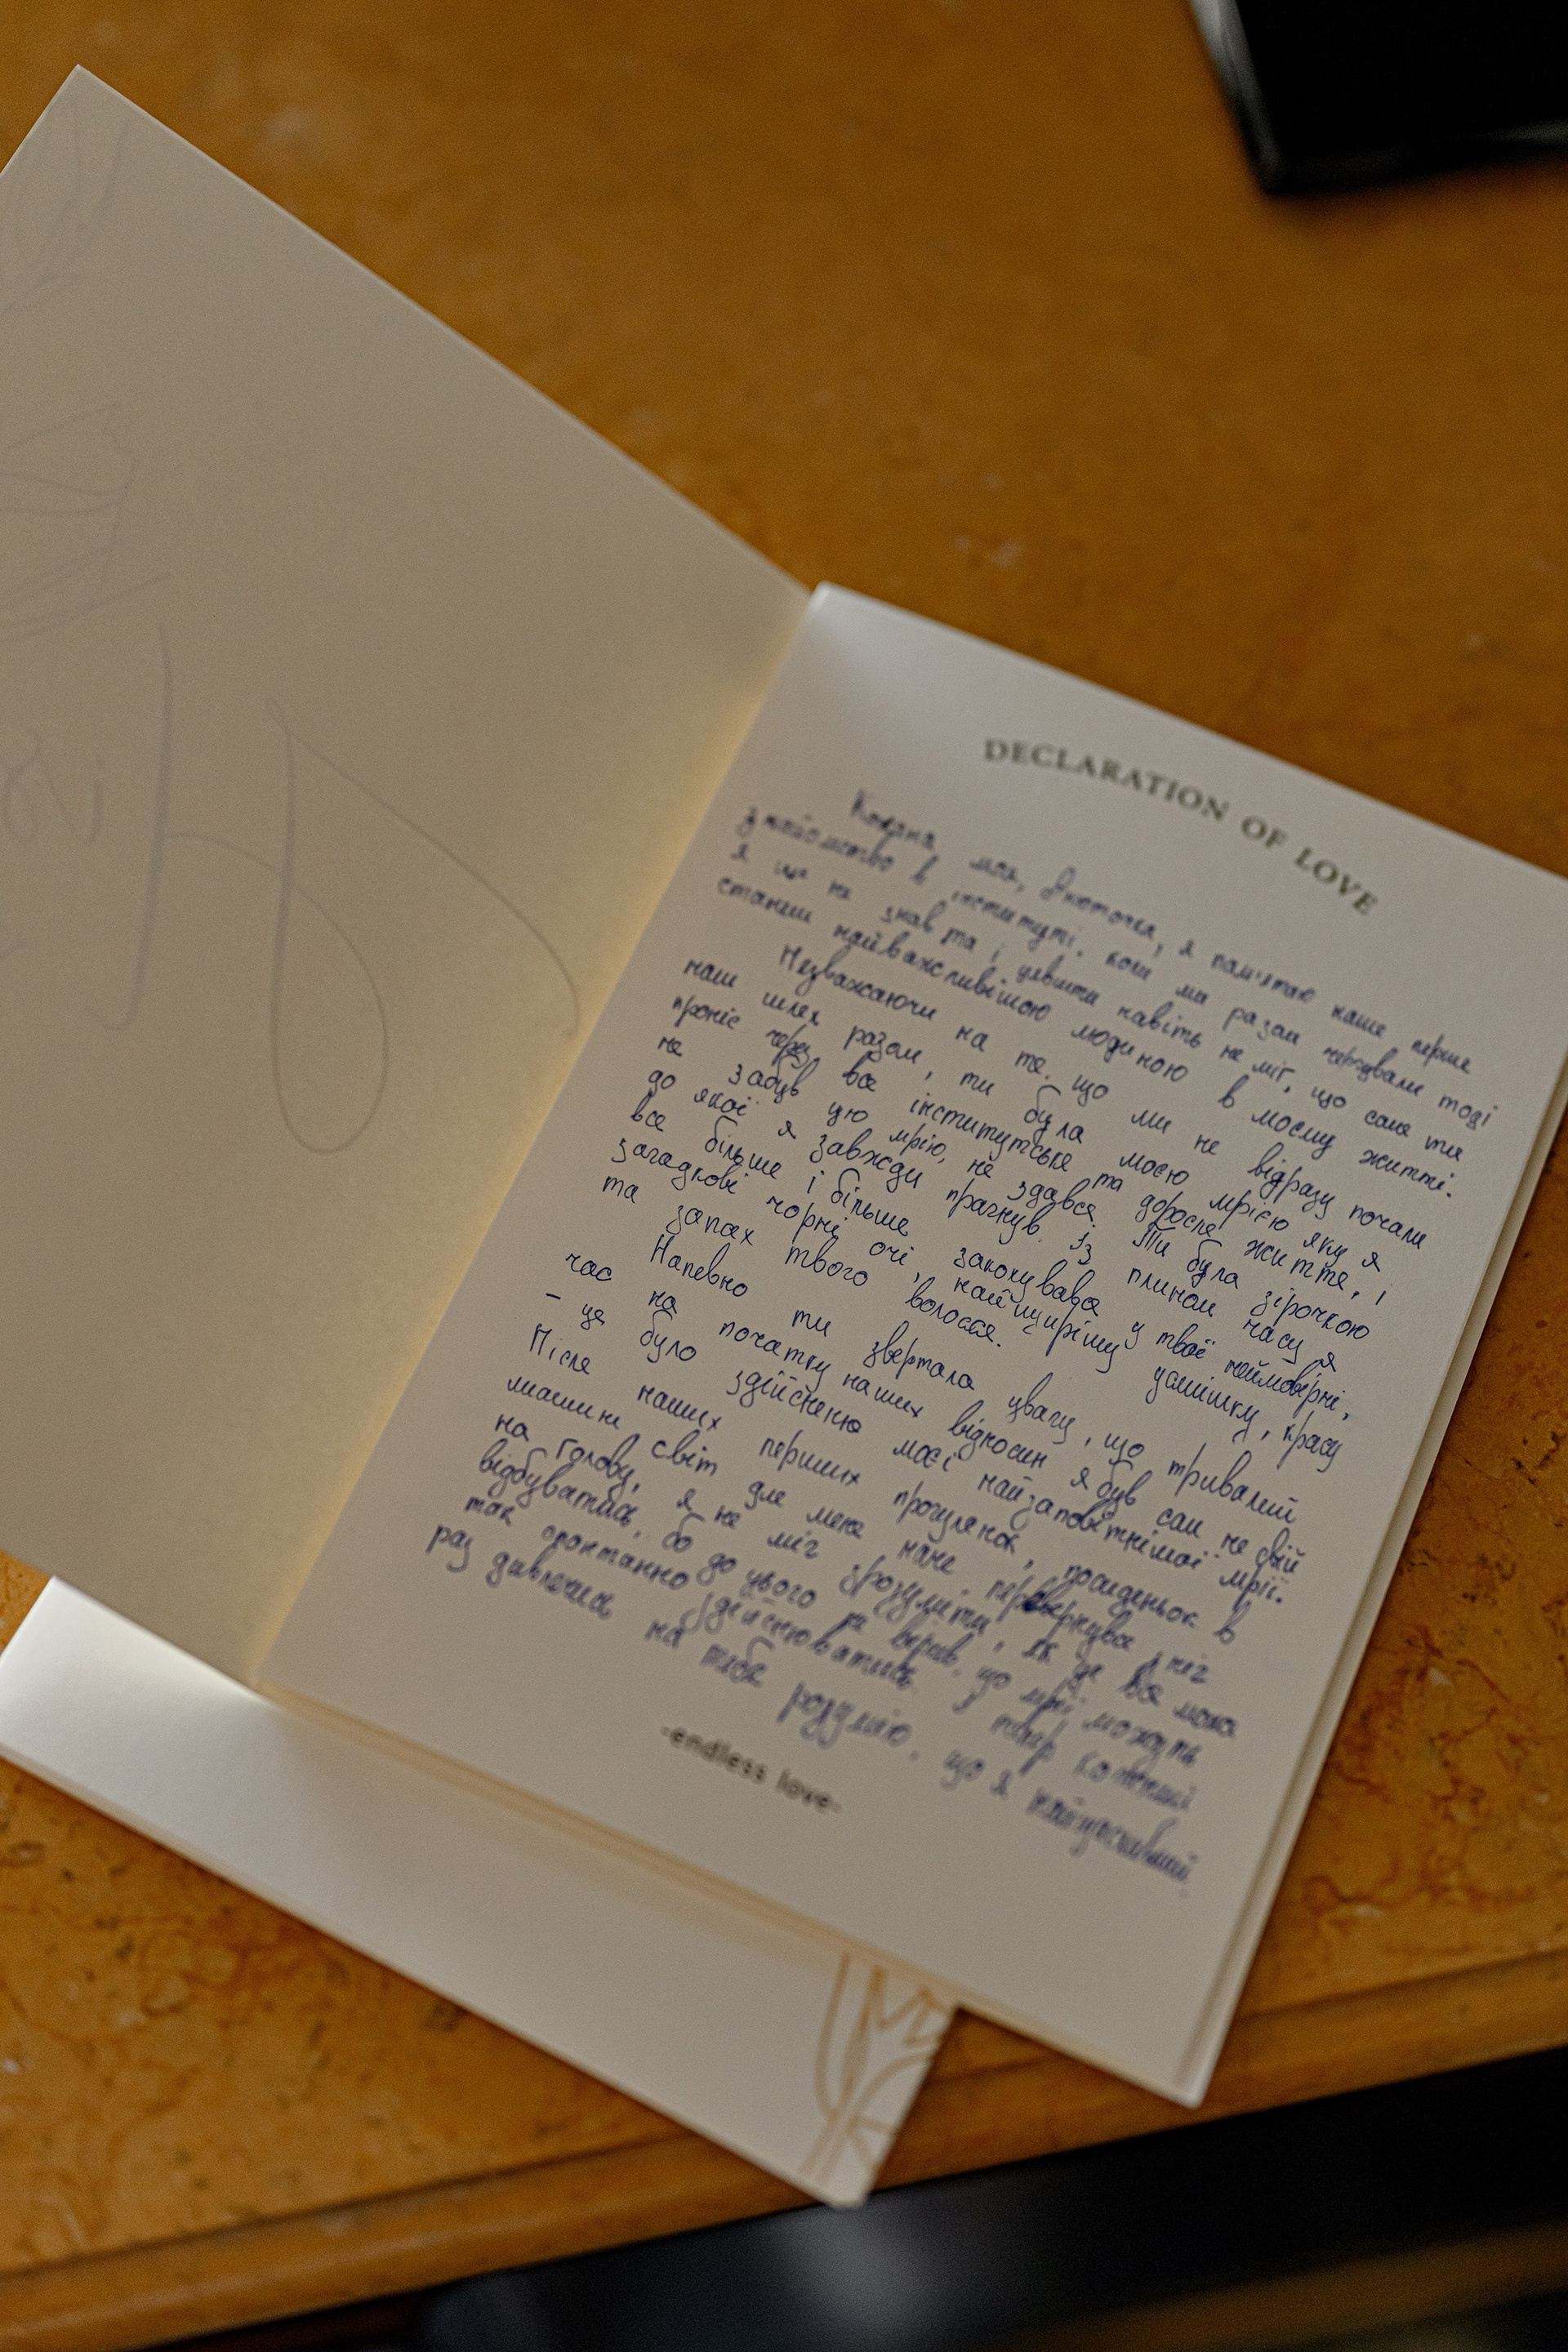 DECLARATION OF LOVE
Кохана моя, я пам'ятаю наше перше
знайомство в інституті, коли ми разом чергували тоді
я ще не знав та і уявити навіть не міг, що саме ти
станеш найважливішою людиною в моєму житті.
Незважаючи на те, що ми не відразу почали
наш шлях разом, ти була моєю мрією яку я
проніс через все інститутське та доросле життя, і
не забув цю мрію, не здався. Ти була зірочкою
до якої я завжди прагнув. Із плином часу я
все більше і більше закохувався у твої неймовірні,
загадкові чорні очі, найщирішу усмішку, красу
та запах твого волосся.
Напевно ти звертала увагу, що тривалий
час на початку наших відносин я був сам не свій
- це було здійсненю моєї найзаповітнішої мрії.
Після наших перших прогулянок, посиденьок в
машині світ для мене наче перевернувся з ніг
на голову, я не міг зрозуміти, як це все може
відбуватись, бо до цього не вірив, що мрії можуть
так спонтанно здійснюватись тепер кожний
раз дивлячись на тебе розумію, що я найщасливіший
-endless love-